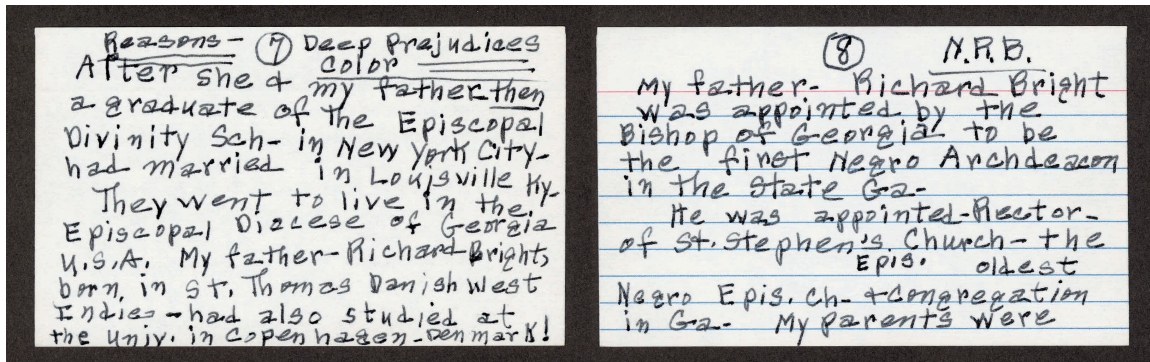 Reasons- ⑦ Deep Prejudices
color
After she & my father then
a graduate of the Episcopal
Divinity Sch- in New York City-
had married in Louisville Ky-
They went to live in the
Episcopal Diocese of Georgia
U.S.A. My father-Richard Bright,
born in St. Thomas Danish West
Indies - had also studied at
the Univ. in Copenhagen-Denmark!
⑧ N.R.B.
My father- Richard Bright
was appointed by the
Bishop of Georgia to be
the first Negro Archdeacon
in the state Ga-
He was appointed-Rector-
of St. Stephen's Church- the
Epis. oldest
Negro Epis. Ch- & congregation
in Ga- My parents were